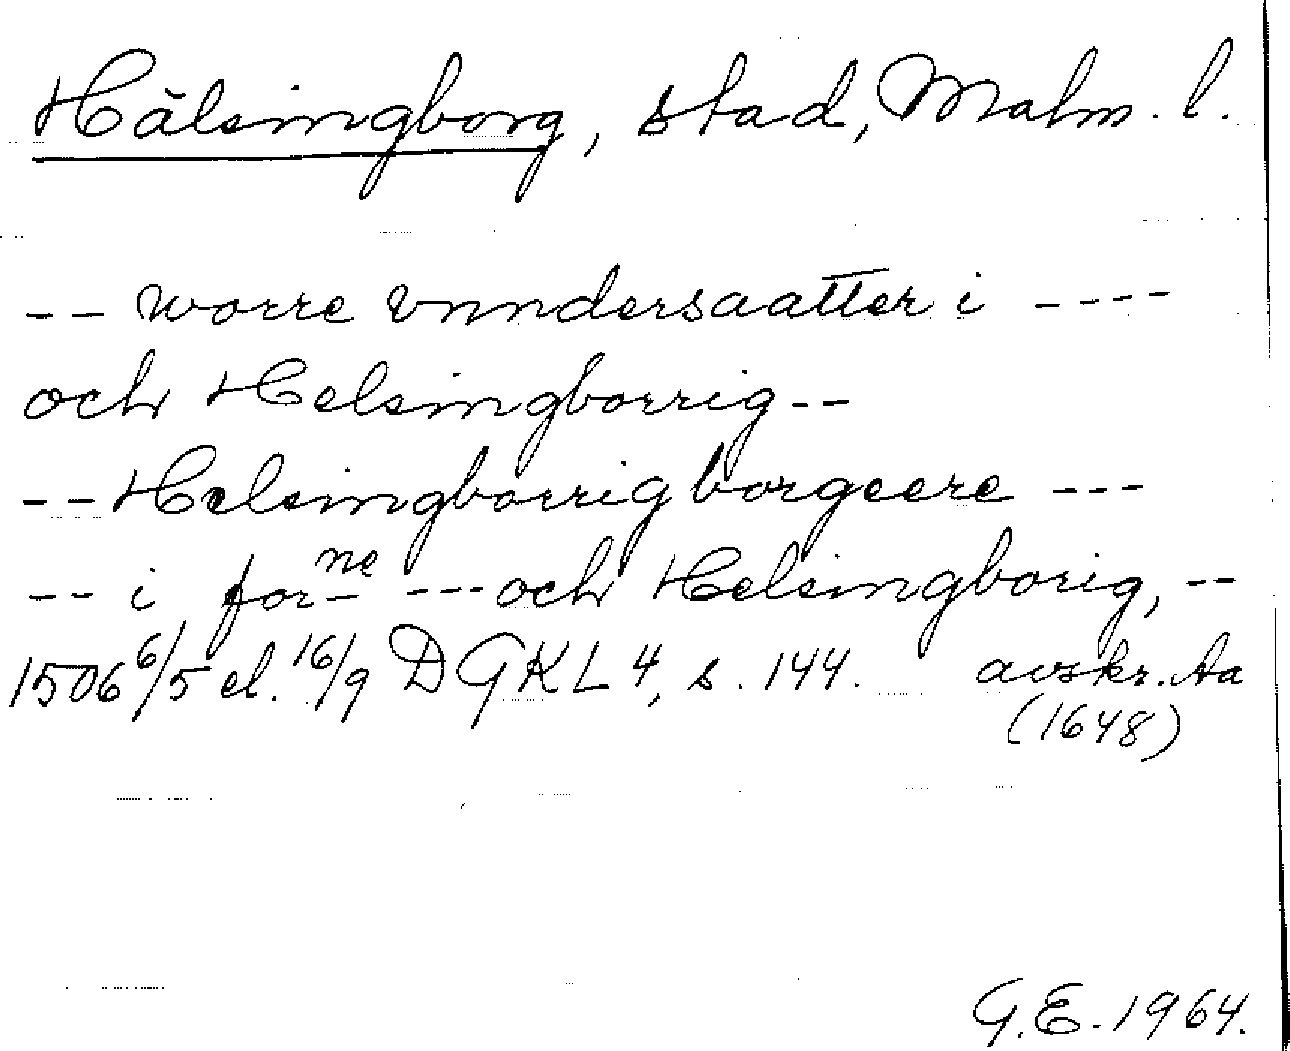 Hälsingborg, stad, Malm. l.
-- worre vnndersaatter i ----
och Helsingborrig --
-- Helsingborrig borgeere ---
-- i for- ne --- och Helsingborig, --
1506 6/5 el. 16/9 DGKL 4, s. 144. avskr. Aa
(1648)
G.E. 1964.